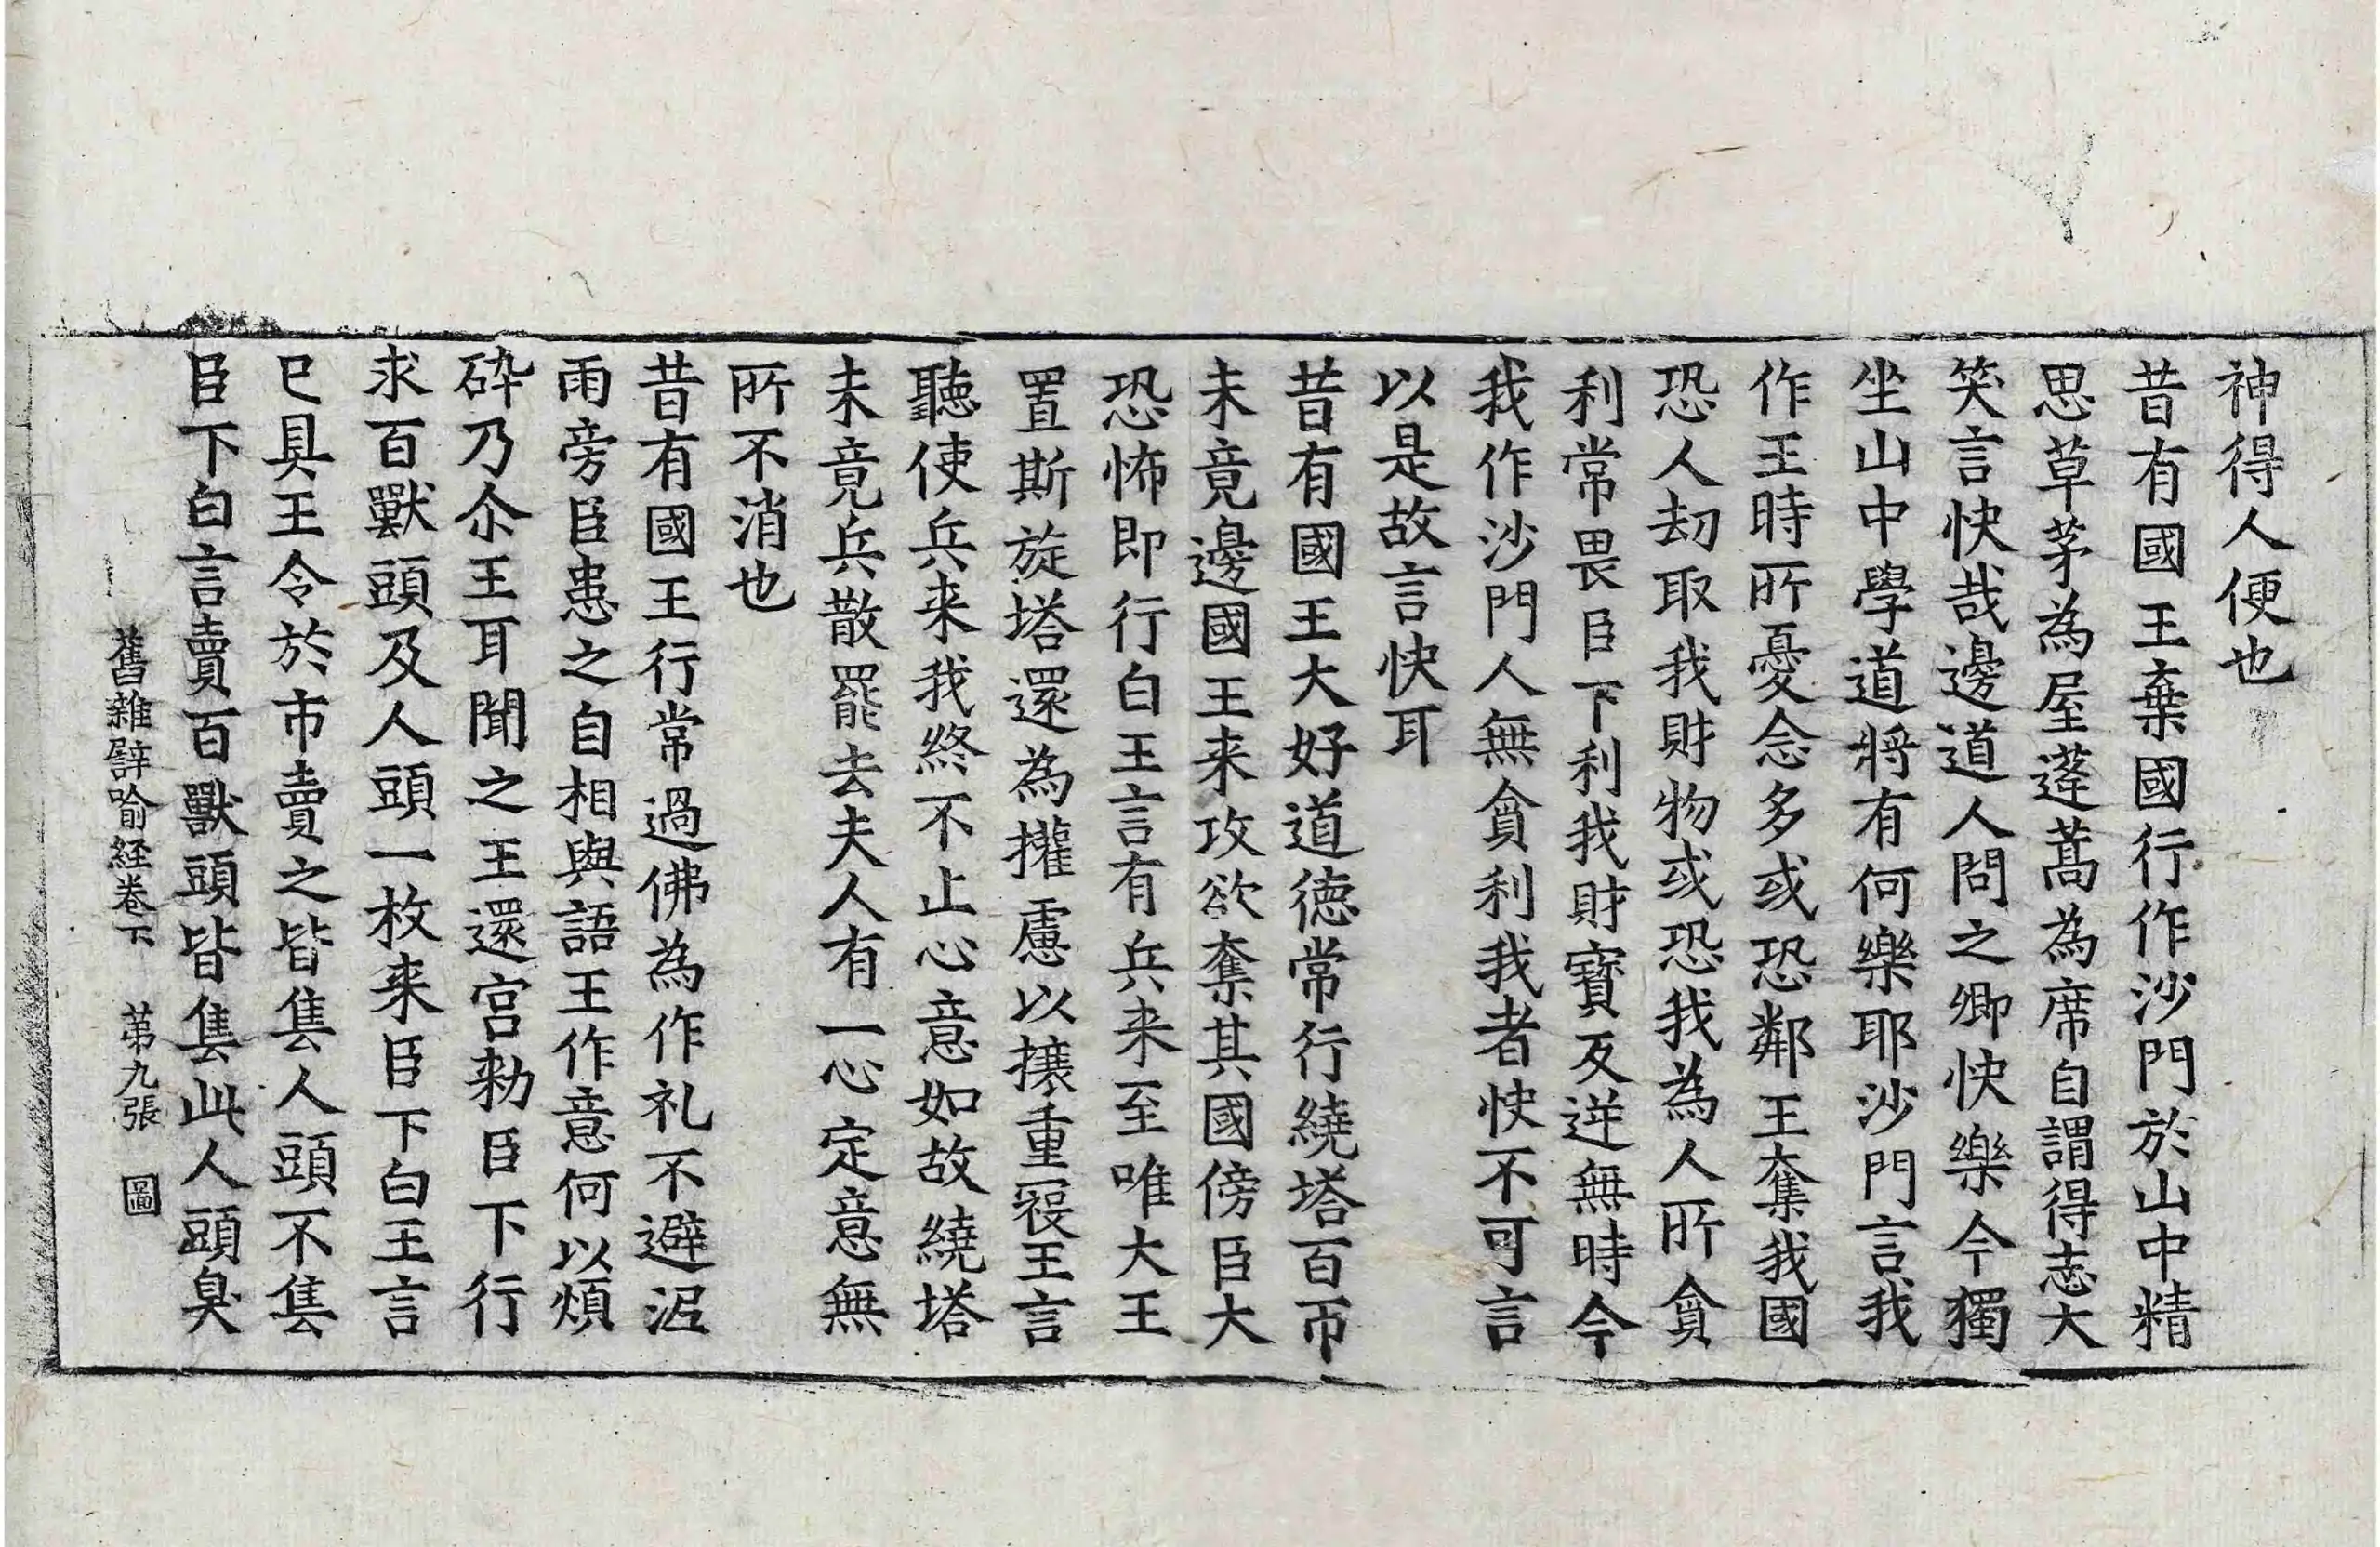 神得人便也
昔有國王棄國行作沙門於山中精
思草茅為屋蓬蒿為席自謂得志大
笑言快哉邊道人問之卿快樂今獨
坐山中學道將有何樂耶沙門言我
作王時所憂念多或恐鄰王奪我國
恐人劫取我財物或恐我為人所貪
利常畏臣下利我財寶反逆無時今
我作沙門人無貪利我者快不可言
以是故言快耳
昔有國王大好道德常行繞塔百帀
未竟邊國王来攻欲奪其國傍臣大
恐怖即行白王言有兵来至唯大王
置斯旋塔還為攉慮以攘重寇王言
聽使兵来我終不止心意如故繞塔
未竟兵散罷去夫人有一心定意無
所不消也
昔有國王行常過佛為作礼不避泥
雨旁臣患之自相與語王作意何以煩
碎乃尒王耳聞之王還宮勑臣下行
求百獸頭及人頭一枚来臣下白王言
已具王令於市賣之皆售人頭不售
臣下白言賣百獸頭皆售此人頭臭
舊雜譬喻経卷下 苐九張 圖